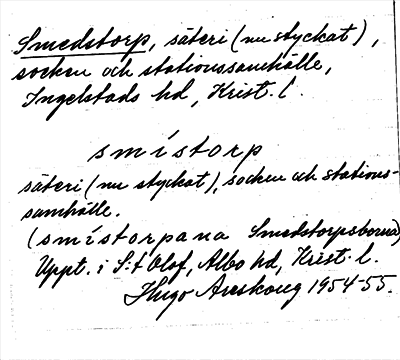 Smedstorp, säteri (nu styckat),
socken och stationssamhälle,
Ingelstads hd, Krist. l.
smístorp
säteri (nu styckat), socken och stations-
samhälle.
(smístorpana Smedstorpsborna)
Uppt. i S:t Olof, Albo hd, Krist. l.
Hugo Areskoug 1954-55.